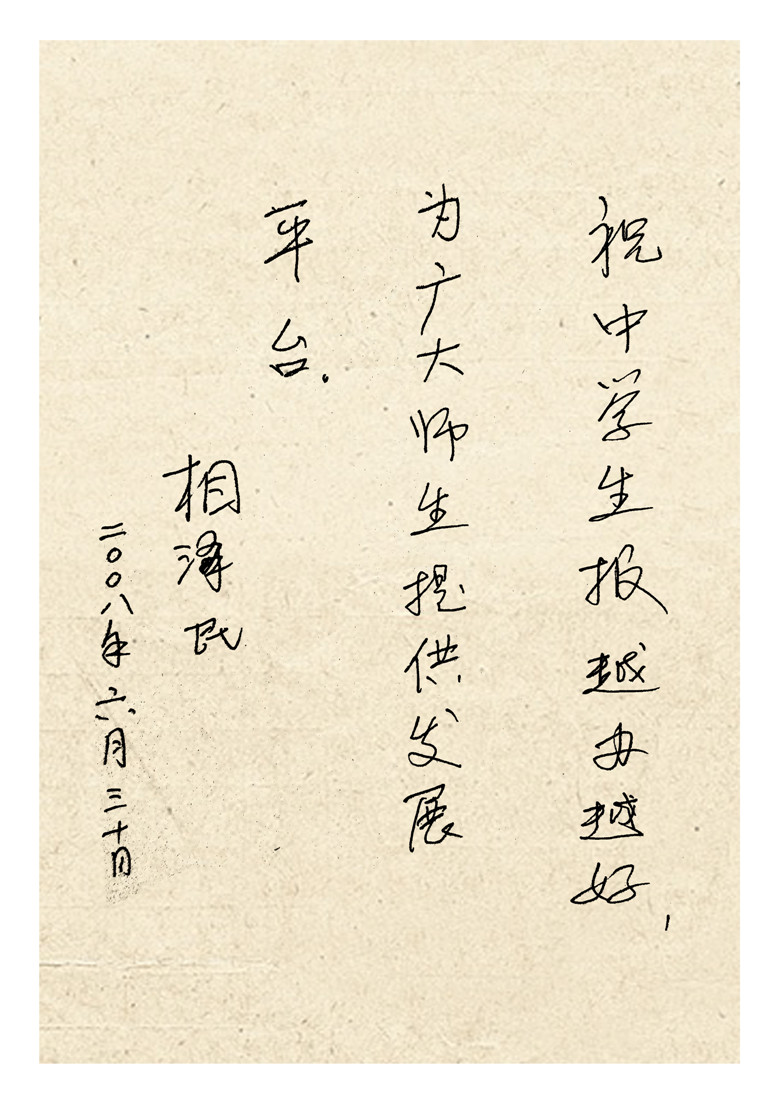 祝中学生报越办越好，
为广大师生提供发展
平台.
相泽民
二〇〇八年六月三十日